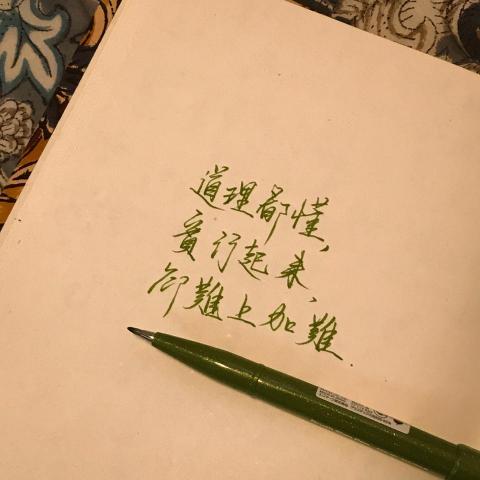 道理都懂，
實行起来，
却難上加難．